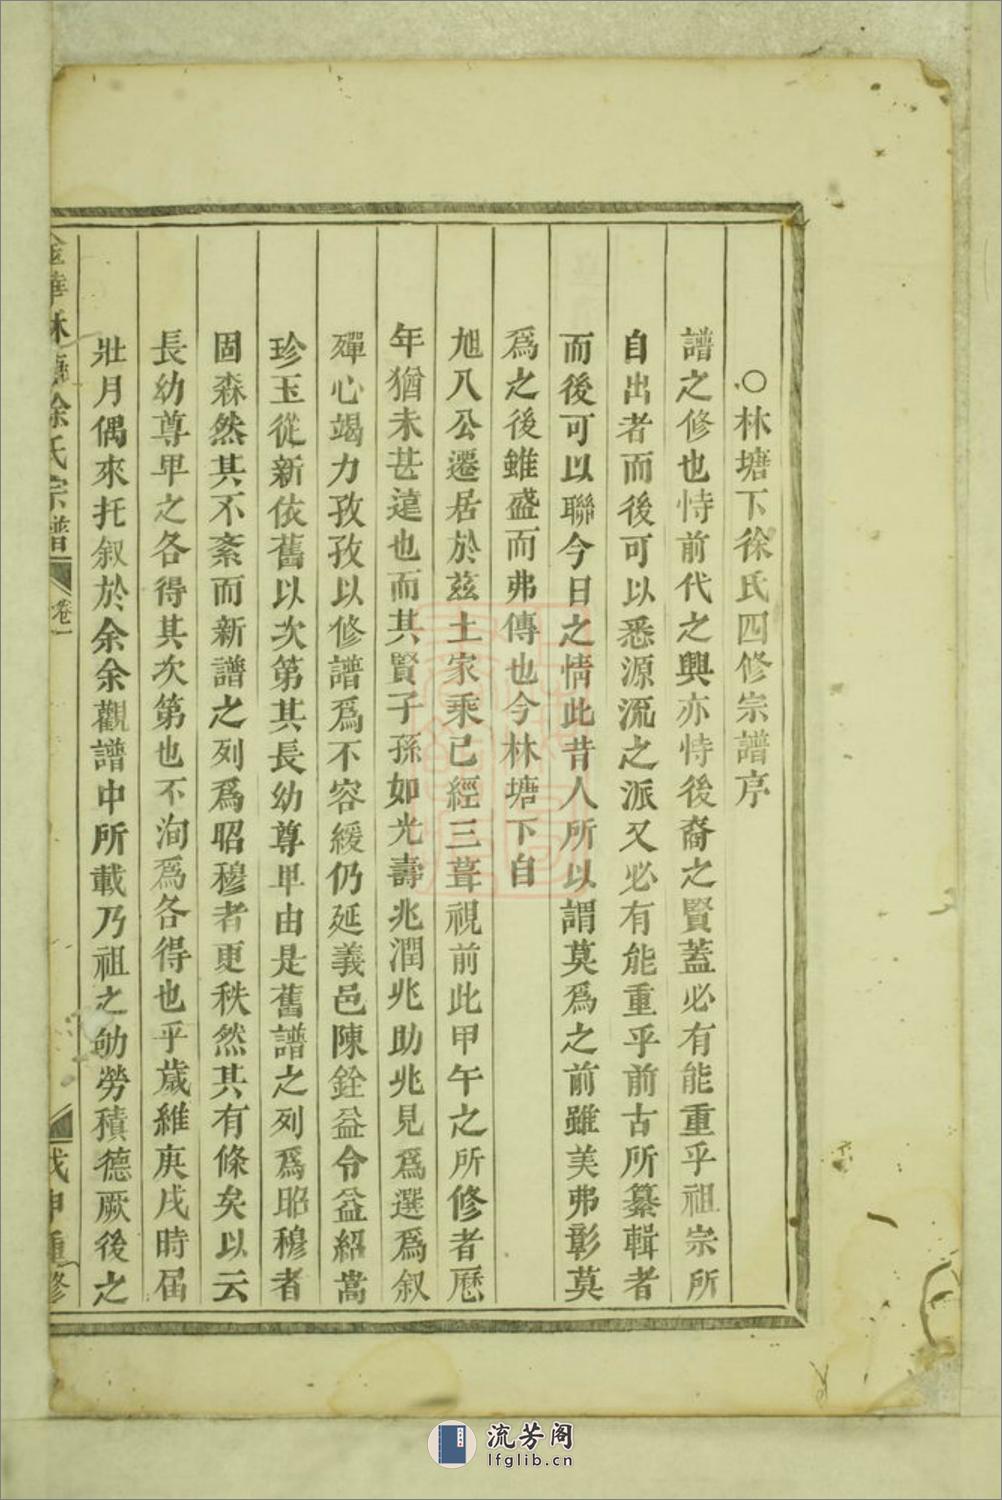 ○林塘下徐氏四修宗譜序
譜之修也恃前代之興亦恃後裔之賢蓋必有能重乎祖宗所
自出者而後可以悉源流之派又必有能重乎前古所纂輯者
而後可以聯今日之情此昔人所以謂莫爲之前雖美弗彰莫
爲之後雖盛而弗傳也今林塘下自
旭八公遷居於茲土家乘已經三葺視前此甲午之所修者歷
年猶未甚遠也而其賢子孫如光壽兆潤兆助兆見爲選爲叙
殫心竭力孜孜以修譜爲不容緩仍延義邑陳銓益令益紹嵩
珍玉從新依舊以次第其長幼尊卑由是舊譜之列爲昭穆者
固森然其不紊而新譜之列爲昭穆者更秩然其有條矣以云
長幼尊卑之各得其次第也不洵爲各得也乎歲維庚戌時届
壯月偶來托叙於余余觀譜中所載乃祖之劬勞積德厥後之
金華林塘徐氏宗譜 卷一 戊申重修
流芳阁
lfglib.cn